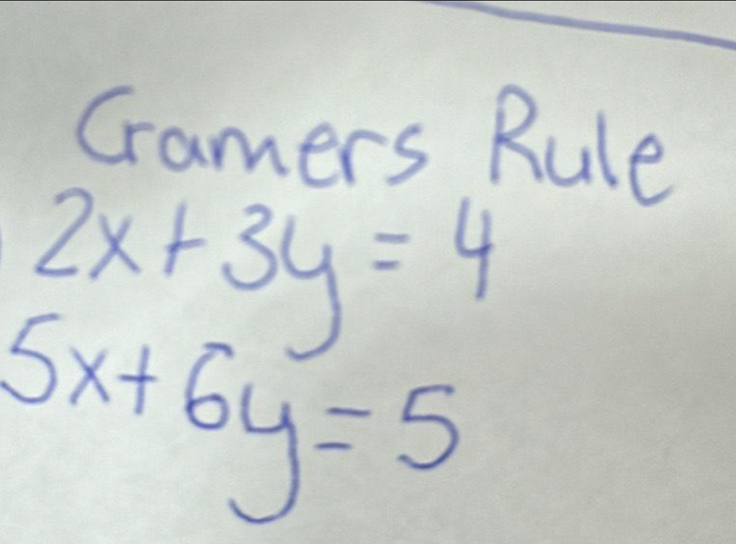 Cramers Rule
2x+3y=4
5x+6y=5